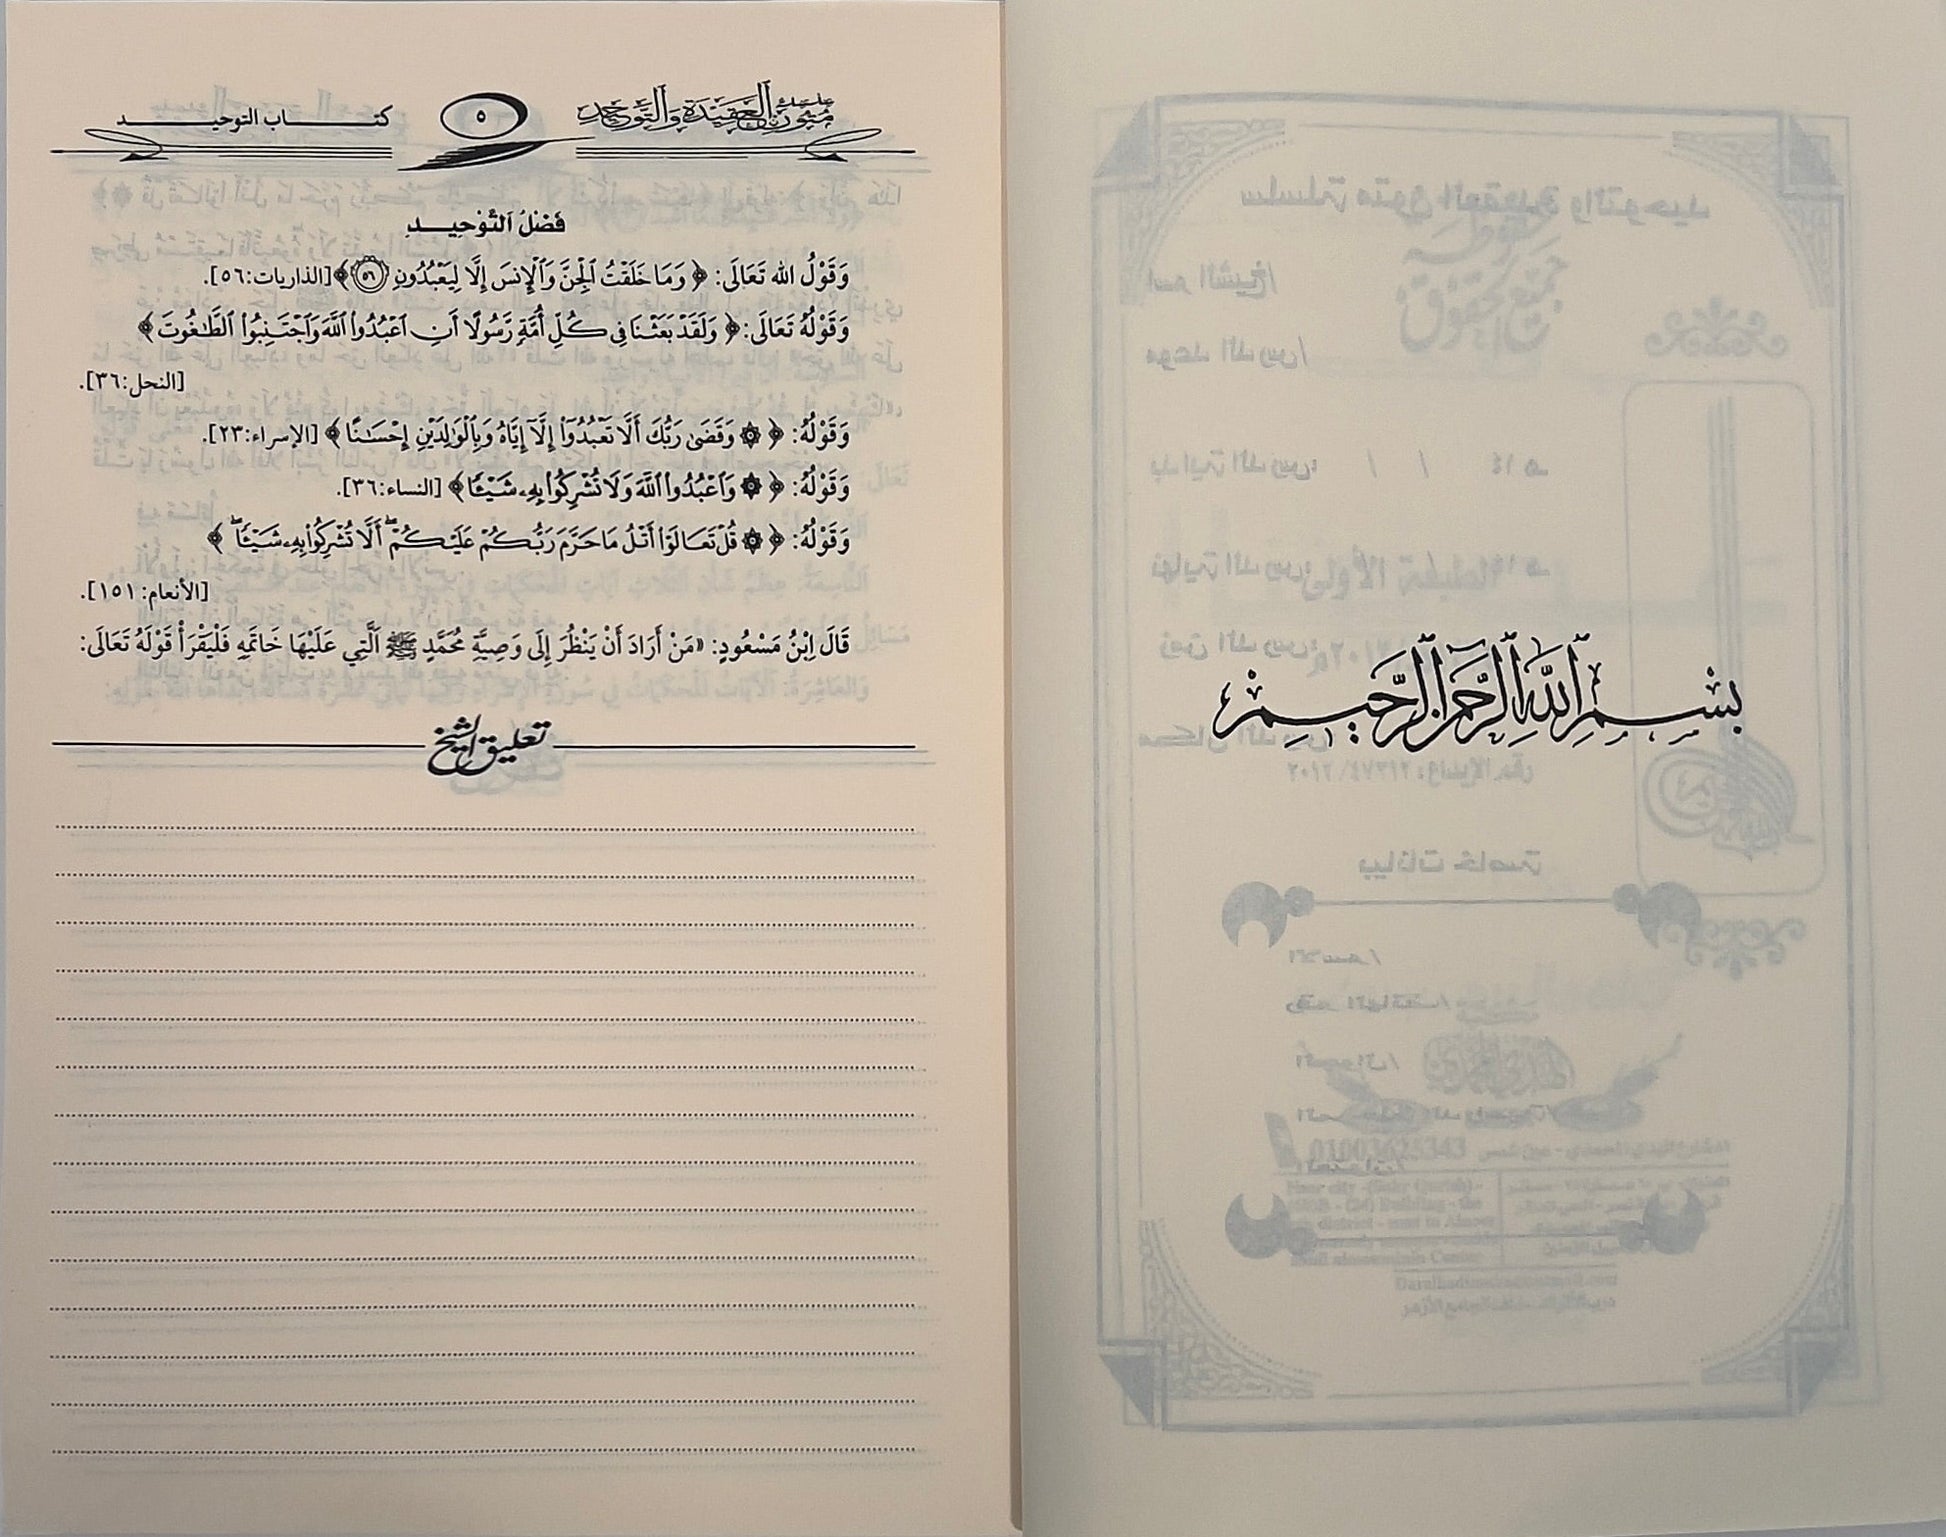 بسم الله الرحمن الرحيم
سلسلة متون العقيدة والتوحيد
٥
كتاب التوحيد
فَضْلُ التَّوْحِيدِ
وَقَوْلُ الله تَعَالَى: ﴿ وَمَا خَلَقْتُ ٱلْجِنَّ وَٱلْإِنسَ إِلَّا لِيَعْبُدُونِ ٥٦ ﴾ [الذاريات:٥٦].
وَقَوْلُهُ تَعَالَى: ﴿ وَلَقَدْ بَعَثْنَا فِي كُلِّ أُمَّةٍ رَّسُولًا أَنِ ٱعْبُدُوا۟ ٱللَّهَ وَٱجْتَنِبُوا۟ ٱلطَّٰغُوتَ ﴾
[النحل:٣٦].
وَقَوْلُهُ: ﴿ ۞ وَقَضَىٰ رَبُّكَ أَلَّا تَعْبُدُوٓا۟ إِلَّآ إِيَّاهُ وَبِٱلْوَٰلِدَيْنِ إِحْسَٰنًا ﴾ [الإسراء:٢٣].
وَقَوْلُهُ: ﴿ ۞ وَٱعْبُدُوا۟ ٱللَّهَ وَلَا تُشْرِكُوا۟ بِهِۦ شَيْـًٔا ﴾ [النساء:٣٦].
وَقَوْلُهُ: ﴿ ۞ قُلْ تَعَالَوْا۟ أَتْلُ مَا حَرَّمَ رَبُّكُمْ عَلَيْكُمْ ۖ أَلَّا تُشْرِكُوا۟ بِهِۦ شَيْـًٔا ۖ ﴾
[الأنعام: ١٥١].
قَالَ اِبْنُ مَسْعُودٍ: «مَنْ أَرَادَ أَنْ يَنْظُرَ إِلَى وَصِيَّةِ مُحَمَّدٍ ﷺ اَلَّتِي عَلَيْهَا خَاتَمُهِ فَلْيَقْرَأْ قَوْلَهُ تَعَالَى:
تعليق الشيخ